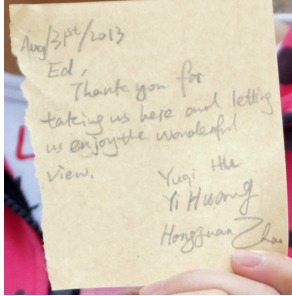 Aug/31st/2013
Ed,
Thank you for
taking us here and letting
us enjoy the wonderful
view.
Yuqi Hu
Yi Huang
Hongjuan Zhao